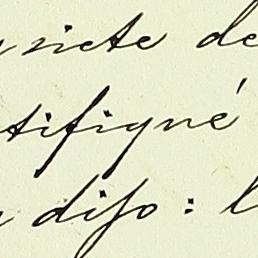 siete de
tifiqué
dijo: l